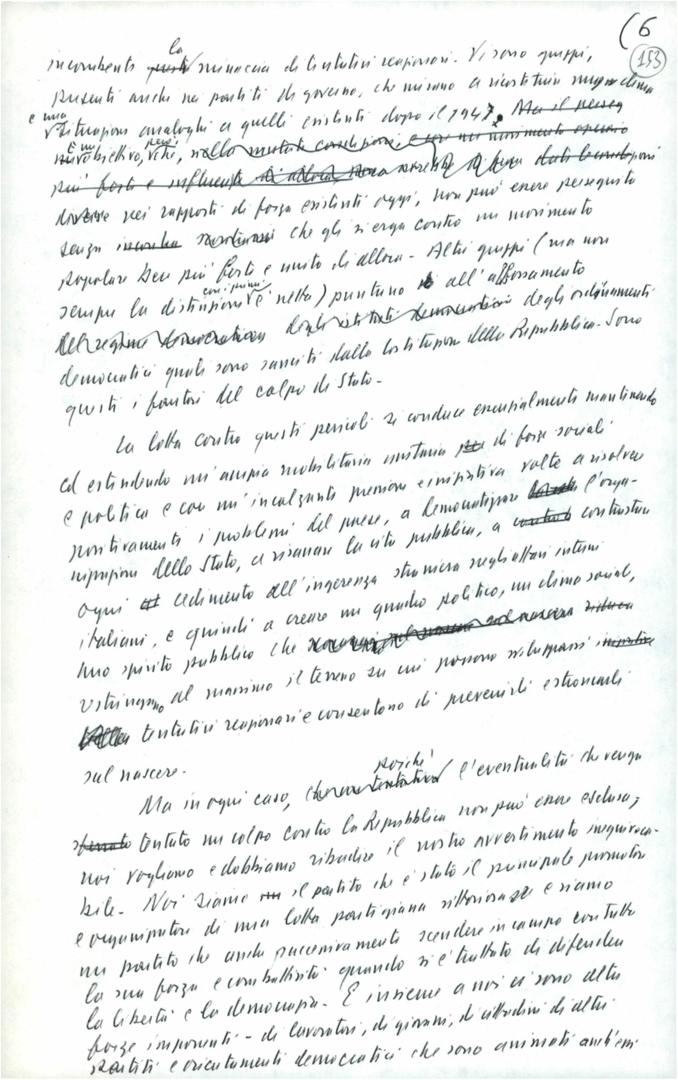 (6
153
la
incombente minaccia di tentativi reazionari. Vi sono gruppi,
presenti anche nei partiti di governo, che mirano a ricostituire clima
e una
situazione analoghi a quelli esistenti dopo il 1947. Ma il
È un obiettivo, però, nella mutata condizione
più forte e influente di allora
diverse nei rapporti di forza esistenti oggi, non può essere perseguito
senza che gli si erga contro un movimento
popolare ben più forte e unito di allora - Altri gruppi (ma non
con i primi
sempre la distinzione è netta) puntano all'affossamento
del regime democratico degli istituti democratici degli ordinamenti
democratici quali sono sanciti dalla Costituzione della Repubblica. Sono
questi i fautori del colpo di Stato -
La lotta contro questi pericoli si conduce essenzialmente mantenendo
ed estendendo un'ampia mobilitazione unitaria di forze sociali
e politica e con un'incalzante pressione e iniziativa volte a risolvere
positivamente i problemi del paese, a democratizzare l'orga-
nizzazione dello Stato, a risanare la vita pubblica, a contrastare
ogni cedimento all'ingerenza straniera negli affari interni
italiani, e quindi a creare un quadro politico, un clima sociale,
uno spirito pubblico che
restringano al massimo il terreno su cui possono svilupparsi
tentativi reazionari e consentano di prevenirli e stroncarli
sul nascere.
poiché
Ma in ogni caso, l'eventualità che venga
tentato un colpo contro la Repubblica non può essere esclusa,
noi vogliamo e dobbiamo ribadire il nostro avvertimento inequivoca-
bile - Noi siamo il partito che è stato il principale promotore
e organizzatore di una lotta partigiana vittoriosa e siamo
un partito che anche successivamente scendere in campo con tutta
la sua forza e combattività quando si è trattato di difendere
la libertà e la democrazia. E insieme a noi ci sono altre
forze imponenti - di lavoratori, di giovani, di cittadini di altri
partiti e orientamenti democratici che sono animati anch'essi